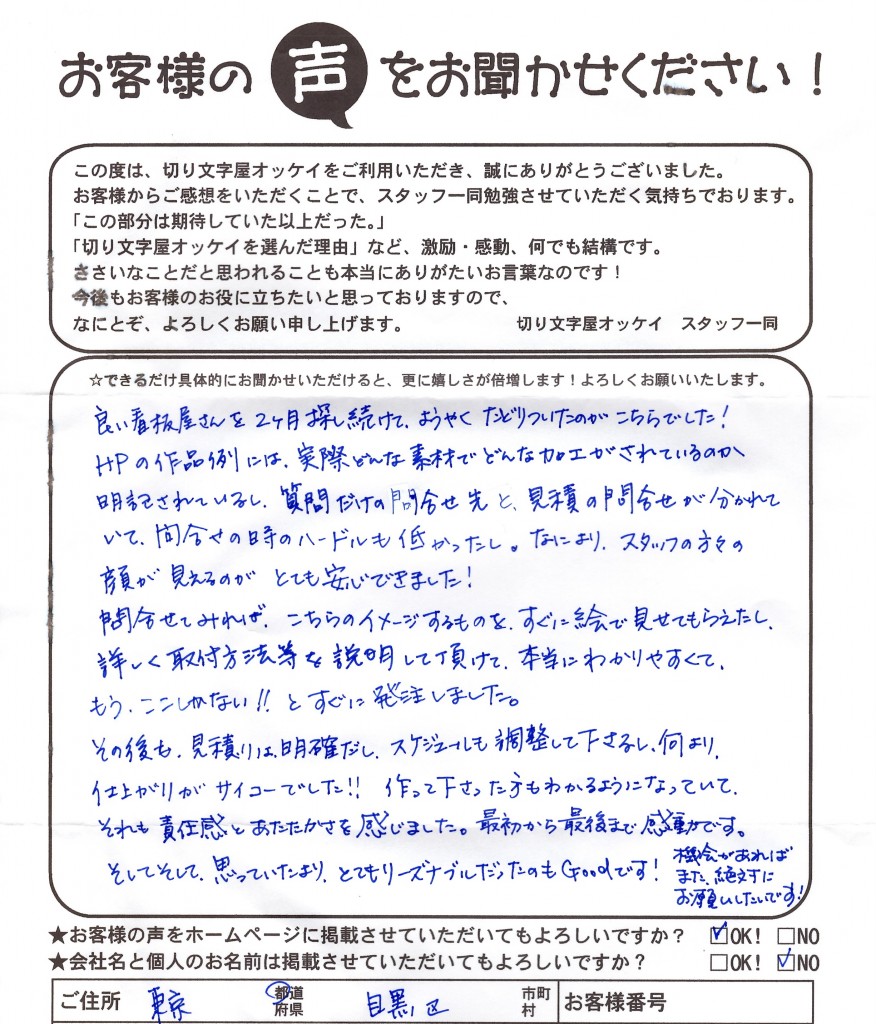 お客様の声をお聞かせください！
この度は、切り文字屋オッケイをご利用いただき、誠にありがとうございました。
お客様からご感想をいただくことで、スタッフ一同勉強させていただく気持ちでおります。
「この部分は期待していた以上だった。」
「切り文字屋オッケイを選んだ理由」など、激励・感動、何でも結構です。
ささいなことだと思われることも本当にありがたいお言葉なのです！
今後もお客様のお役に立ちたいと思っておりますので、
なにとぞ、よろしくお願い申し上げます。　切り文字屋オッケイ　スタッフ一同
☆できるだけ具体的にお聞かせいただけると、更に嬉しさが倍増します！よろしくお願いいたします。
良い看板屋さんを2ヶ月探し続けて、ようやくたどりついたのがこちらでした！
HPの作品例には、実際どんな素材でどんな加工がされているのか
明記されているし、質問だけの問合せ先と、見積の問合せが分かれて
いて、問合せの時のハードルも低かったし。なにより、スタッフの方々の
顔が見えるのがとても安心できました！
問合せてみれば、こちらのイメージするものを、すぐに絵で見せてもらえたし、
詳しく取付方法等を説明して頂けて、本当にわかりやすくて、
もう、ここしかない!!とすぐに発注しました。
その後も、見積りは、明確だし、スケジュールも調整して下さるし、何より、
仕上がりがサイコーでした!!　作って下さった方もわかるようになっていて、
それも責任感とあたたかさを感じました。最初から最後まで感動です。
そしてそして、思っていたより、とてもリーズナブルだったのもGoodです！
機会があれば
また、絶対に
お願いしたいです！
★お客様の声をホームページに掲載させていただいてもよろしいですか？　☑OK!　□NO
★会社名と個人のお名前は掲載させていただいてもよろしいですか？　□OK!　☑NO
ご住所　東京　都道府県　目黒区　市町村　お客様番号